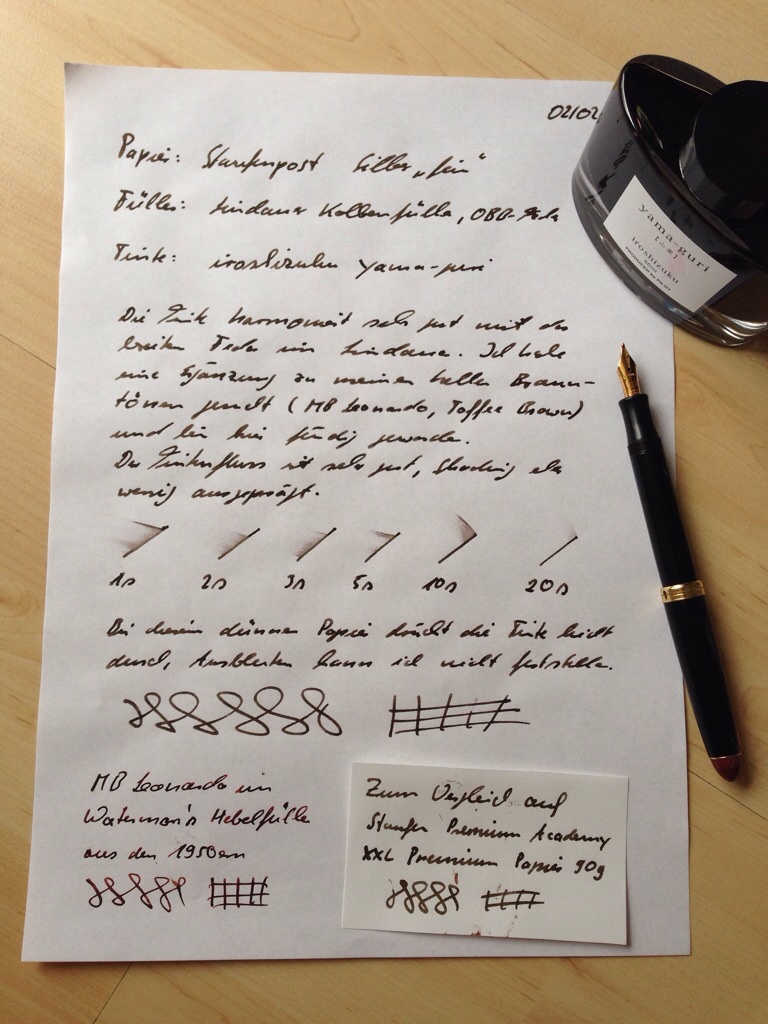 02/02
Papier: Staufenpost Silber „fein“
Füller: Lindauer Kolbenfüller, OBB-Feder
Tinte: iroshizuku yama-guri
Die Tinte harmoniert sehr gut mit der
breiten Feder im Lindauer. Ich habe
eine Ergänzung zu meinen hellen Braun-
tönen gesucht (MB Leonardo, Toffee Brown)
und bin hier fündig geworden.
Der Tintenfluss ist sehr gut, Shading eher
wenig ausgeprägt.
1s 2s 3s 5s 10s 20s
Bei diesem dünnen Papier drückt die Tinte leicht
durch, Ausbluten kann ich nicht feststellen.
MB Leonardo im
Waterman's Hebelfüller
aus den 1950ern
Zum Vergleich auf
Staufen Premium Academy
XXL Premium Papier 90g
yama-guri
[山栗]
iroshizuku